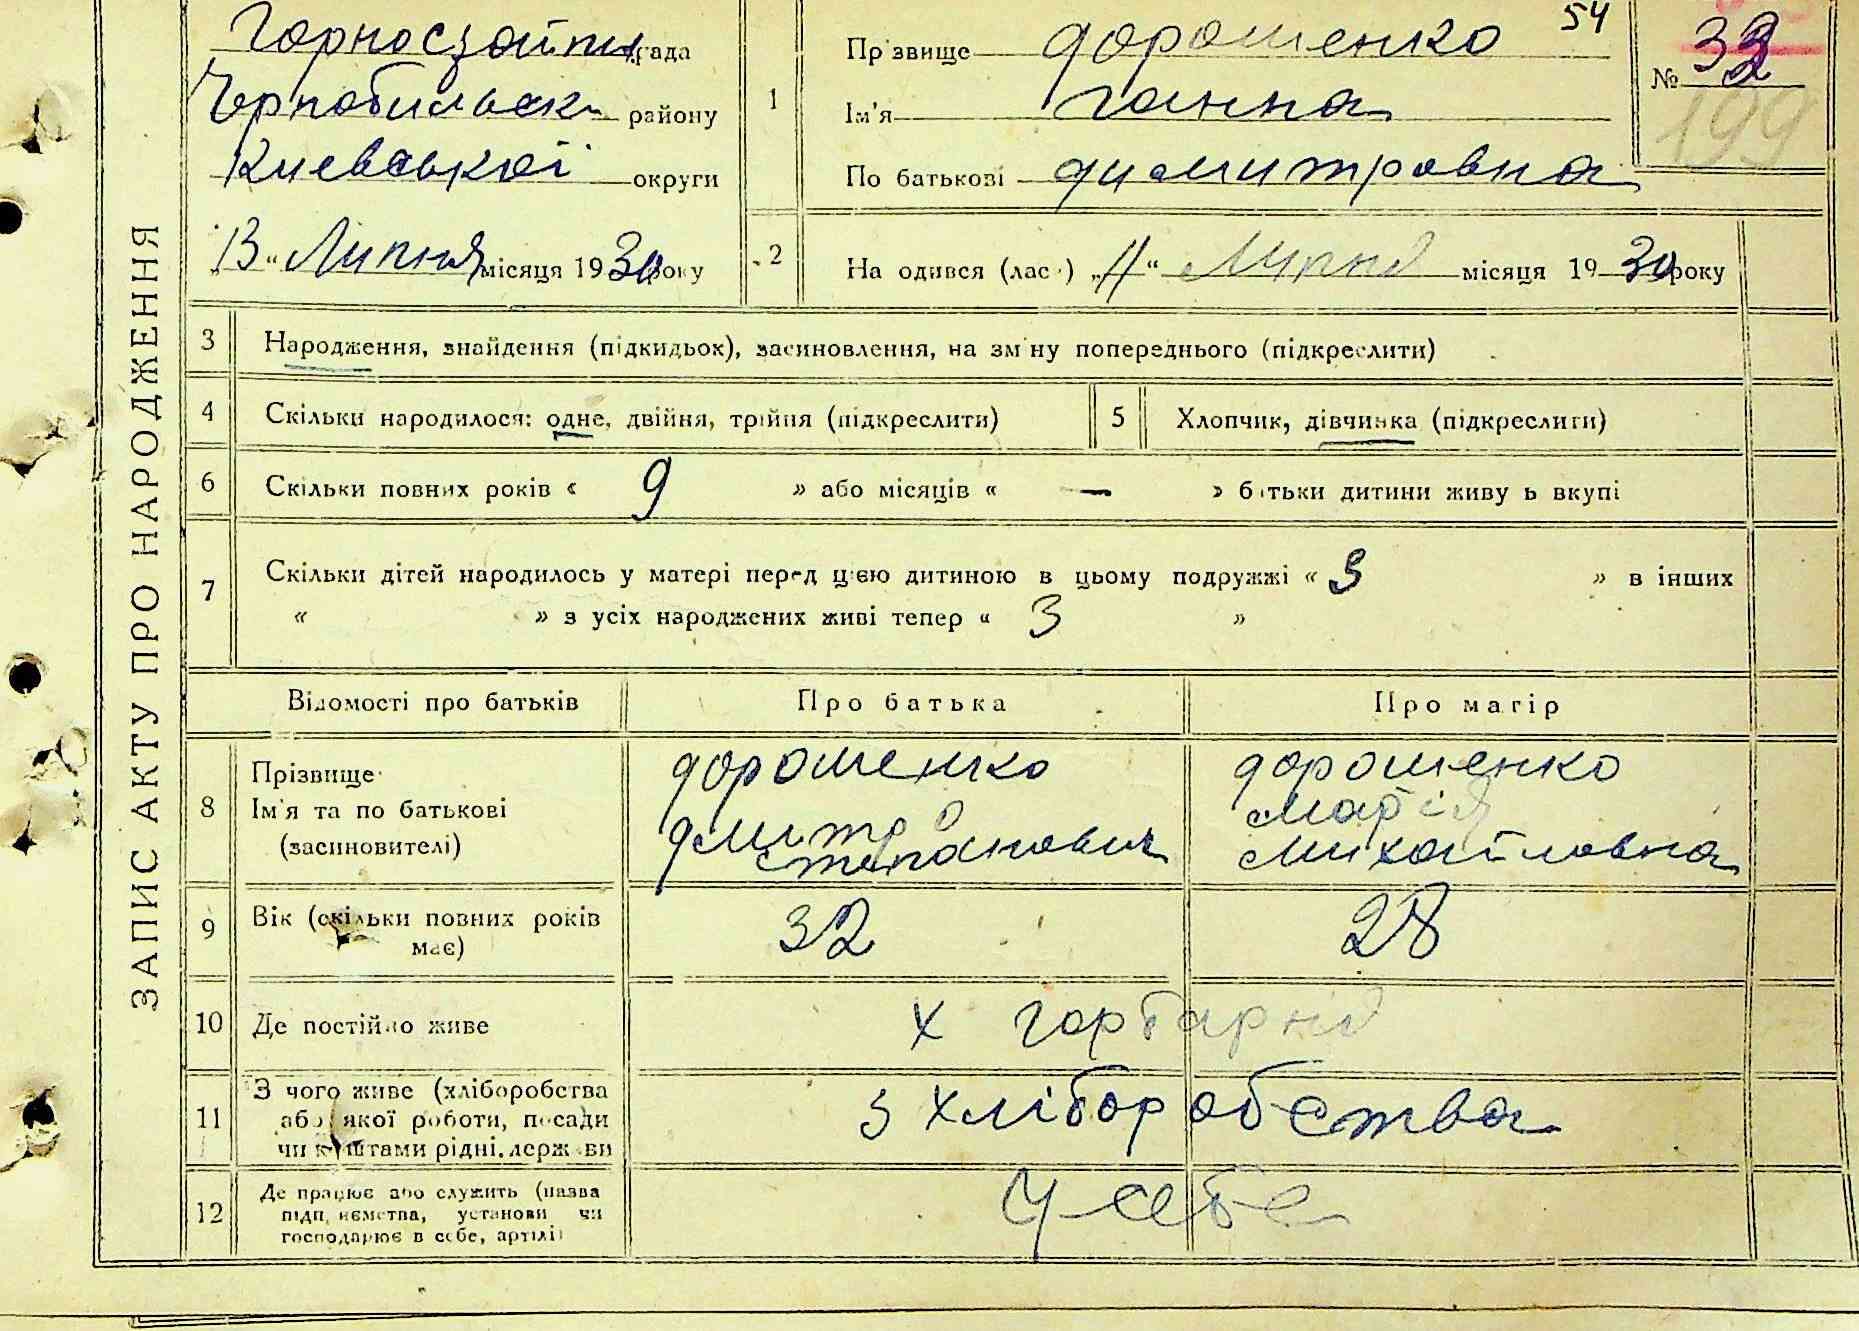 ЗАПИС АКТУ ПРО НАРОДЖЕННЯ
рада
Чернобильск району
Киевської округи
„13“ Липня місяця 1930 року
54
№ 33
199
1
Прізвище Дорошенко
Ім'я Ганна
По батькові Димитровна
2
На одився (лас ) „11“ Липня місяця 1930 року
3 Народження, знайдення (підкидьох), засиновлення, на зміну попереднього (підкреслити)
4 Скільки народилося: одне, двійня, трійня (підкреслити)
5 Хлопчик, дівчинка (підкреслити)
6 Скільки повних років « 9 » або місяців « — » батьки дитини живуть вкупі
7 Скільки дітей народилось у матері перед цією дитиною в цьому подружжі « 3 » в інших
« » з усіх народжених живі тепер « 3 »
Відомості про батьків Про батька Про матір
8
Прізвище
Ім'я та по батькові
(засиновителі)
Дорошенко
Дмитро
Степанович
Дорошенко
Марія
Михайловна
9 Вік (скільки повних років
має)
32
28
10 Де постійно живе
х Горбарня
11 З чого живе (хліборобства
або якої роботи, посади
чи коштами рідні, держави
з хліборобства
12 Де працює або служить (назва
підприємства, установи чи
господарює в себе, артілі)
У себе